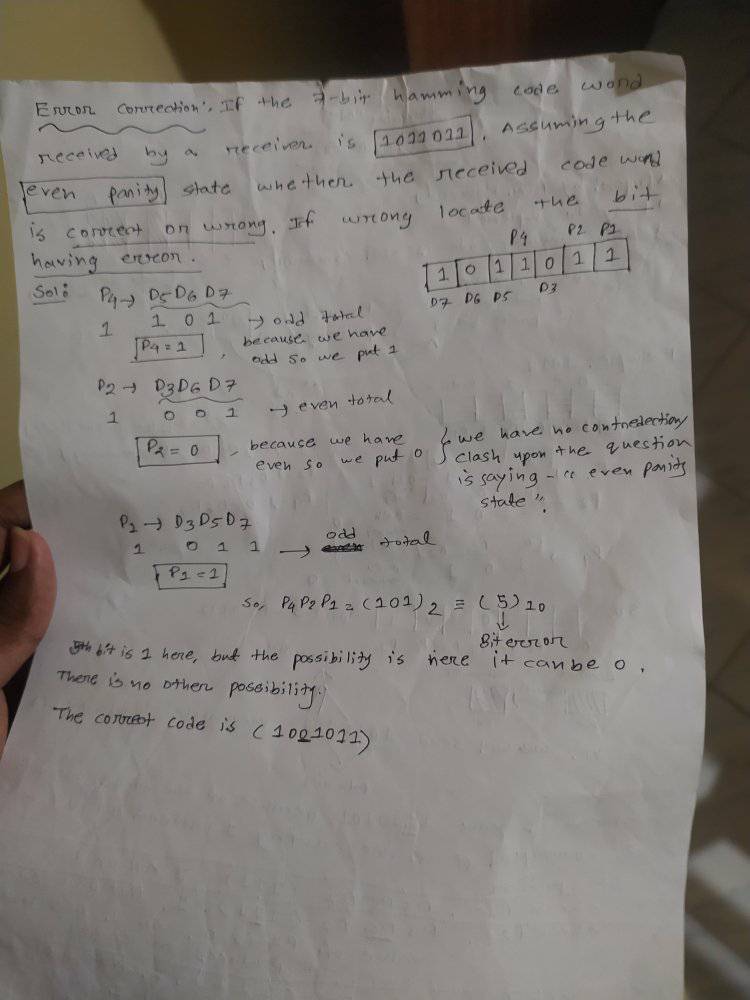 Error correction:. If the 7-bit hamming code word
received by a receiver is 1011011. Assuming the
even parity state whether the received code word
is correct or wrong. If wrong locate the bit
having error.
P4 P2 P1
1 0 1 1 0 1 1
D7 D6 D5 D3
Sol:
P4 → D5 D6 D7
1 1 0 1 → odd total
P4 = 1, because we have
odd so we put 1
P2 → D3 D6 D7
1 0 0 1 → even total
P2 = 0, because we have
even so we put 0
} we have no contredection/
clash upon the question
is saying - " even parity
state ".
P1 → D3 D5 D7
1 0 1 1 → odd total
P1 = 1
so, P4 P2 P1 = (101)2 ≡ (5)10
↓
Bit error
5th bit is 1 here, but the possibility is here it can be 0.
There is no other possibility.
The correct code is (1001011)